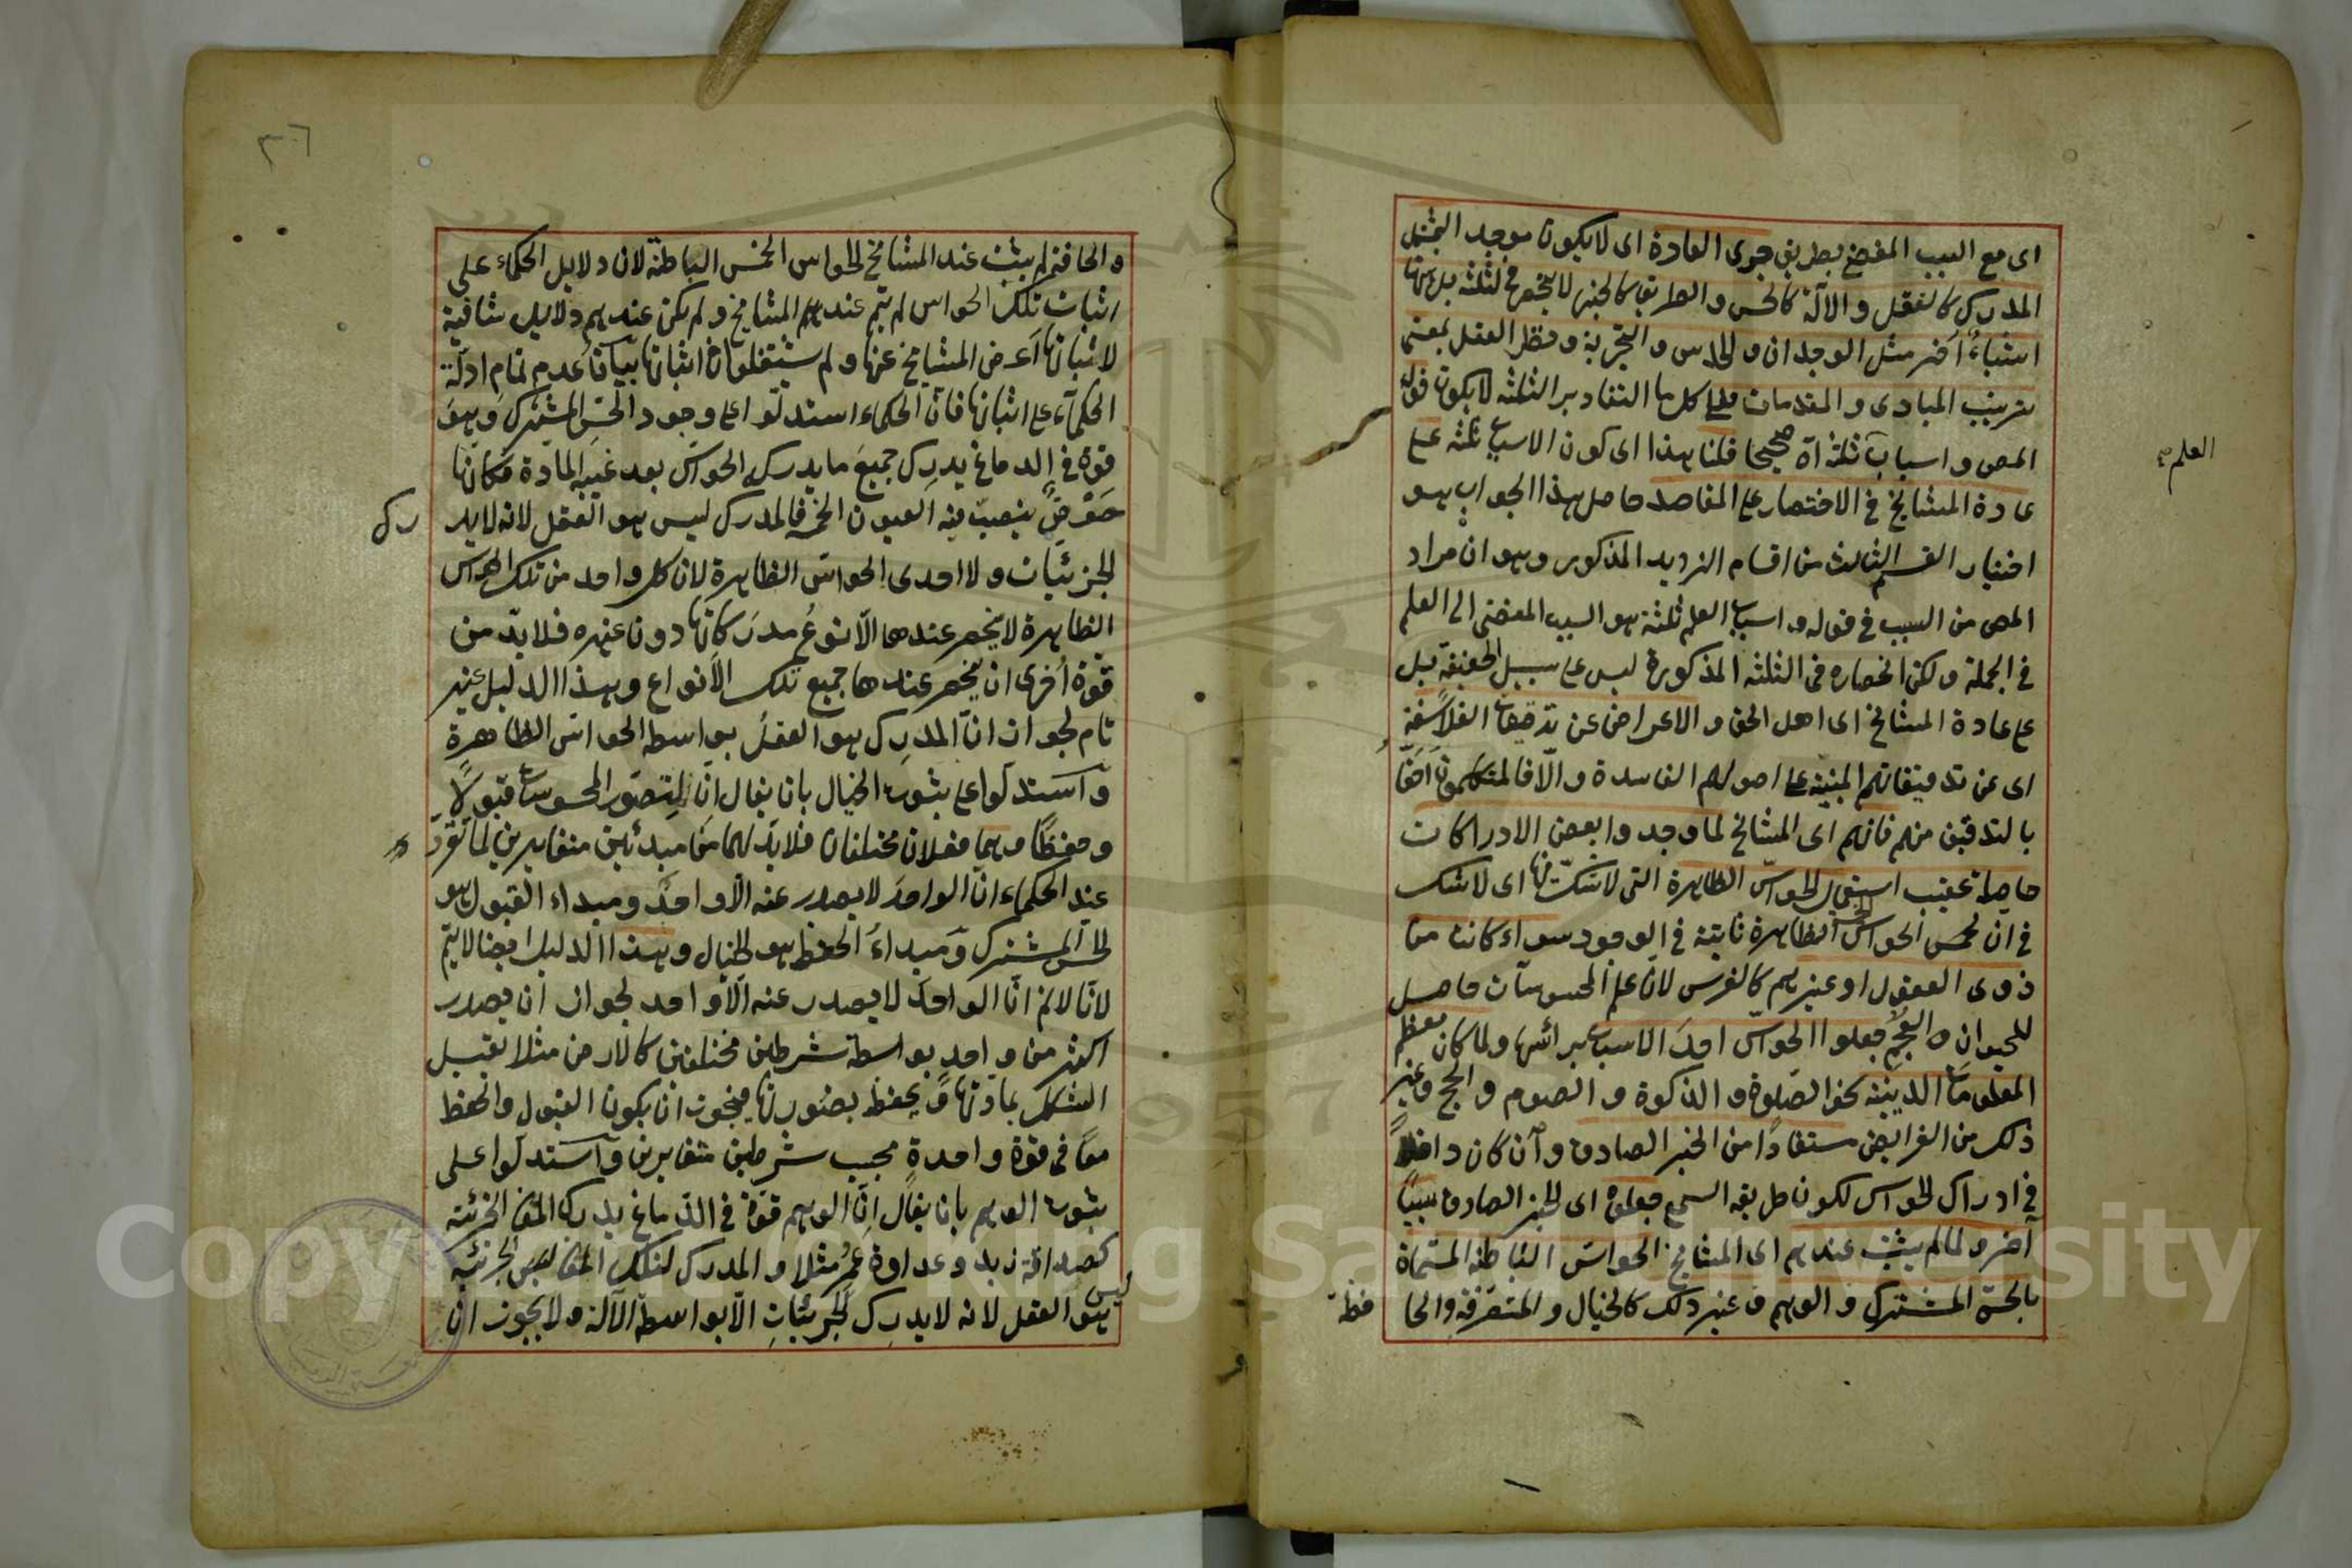 اى مع السبب المفضى بطريق جرى العادة اى لا يكون موجد ليشمل
المدرك كالعقل والآلة كالحس والطريق كالخبر لا ينحصر فى الثلثة بل ههنا
اشياء أخر مثل الوجدان والحدس والتجربة ونظر العقل بمعنى
ترتيب المبادى والمقدمات فعلى كل ها التقادير الثلثة لا يكون قول
المص واسباب ثلثة اه صحيحا قلنا هذا اى كون الاسباب ثلثة على
العلم
عادة المشايخ فى الاختصار على المقاصد حاصل هذا الجواب هو
اختيار القسم الثالث من اقسام الترديد المذكور وهو ان مراد
المص من السبب فى قوله واسباب العلم ثلثة هو السبب المفضى الى العلم
فى الجملة ولكن انحصاره فى الثلثة المذكورة ليس على سبيل الحقيقة بل
على عادة المشايخ اى اهل الحق والاعراض عن تدقيقات الفلاسفة
اى عن تدقيقاتهم المبنية على اصولهم الفاسدة والّا فالمتكلمون احقّ
بالتدقيق منهم فانهم اى المشايخ لما وجدوا بعض الادراكات
حاصلة عقيب استعمال الحواسّ الظاهرة التى لا شكّ فيها اى لا شك
فى ان الخمس الحواس الظاهرة ثابتة فى الوجود سواء كانت من
ذوى العقول او غيرهم كالفرس لان علم المحسوسات حاصل
للحيوان والعجم جعلوا الحواسّ احدَ الاسباب برائسها ولما كان معظم
المعلومات الدينية نحو الصلوة والذكوة والصوم والحج وغير
ذلك من الفرايض مستفادًا من الخبر الصادق وان كان داخلاً
فى ادراك الحواس لكون طريقه السمع جعلوه اى الخبر الصادق سببًا
آخر ولما لم يثبت عندهم اى المشايخ الحواسّ الباطنة المسمّاة
بالحسّ المشترك والوهم وغير ذلك كالخيال والمتصرّفة والحا
فظة
٣٦
والحافظة لم يثبت عند المشايخ الحواس الخمس الباطنة لان دلايل الحكماء على
اثبات تلك الحواس لم يتم عندهم المشايخ ولم يكن عندهم دلايل شافية
لاثباتها اعرض المشايخ عنها ولم يشتغلوا فى اثباتها بيان عدم تمام ادلّة
الحكمآء على اثباتها فانّ الحكماء استدلّوا على وجود الحسّ المشترك وهو
قوة فى الدماغ يدرك جميع ما يدرك الحواسّ بعد غيبة المادة فكانها
حَوْضٌ ينصبّ فيه العيون الخمسة فالمدرك ليس هو العقل لانه لا يد
رك
الجزئيات ولا احدى الحواسّ الظاهرة لان كل واحد من تلك الحواس
الظاهرة لا ينحصر عندها الّا نوعُ مدرَكاتها دون غيره فلا بدّ من
قوة أخرى ان ينحصر عندها جميع تلك الأنواع وهذا الدليل غير
تام لجواز انّ المدرِك هو العقلُ بواسطة الحواسّ الظاهرة
واستدلّوا على ثبوت الخيال بان يقال انّ لتصوّر المحسوسات قبولاً
وحفظًا وهما فعلان مختلفان فلا بدّ لهما من مبدئين متغايرين لما تقرّر
عند الحكماء انّ الواحدَ لا يصدر عنه الّا واحدٌ ومبداء القبول هو
الحس المشترك ومبداءُ الحفظ هو الخيال وهذا الدليل ايضا لا يتمّ
لانّا لا نم انّ الواحدَ لا يصدر عنه الّا واحد لجواز ان يصدر
اكثر من واحدٍ بواسطة شرطين مختلفين كالارض مثلا يقبل
الشكل بمادّتها ويحفظ بصورتها فيجوز ان يكون القبول والحفظ
معًا فى قوّة واحدةٍ بحسب شرطين متغايرين واستدلّوا على
ثبوت الوهم بان يقال انّ الوهم قوّة فى الدّماغ يدرك المعانى الجزئية
كصداقة زيد وعداوة عمرٍ مثلا والمدرك لتلك المعانى الجزئية
ليس هو العقل لانه لا يدرك الجزئياتِ الّا بواسطة الآلة ولا يجوز ان